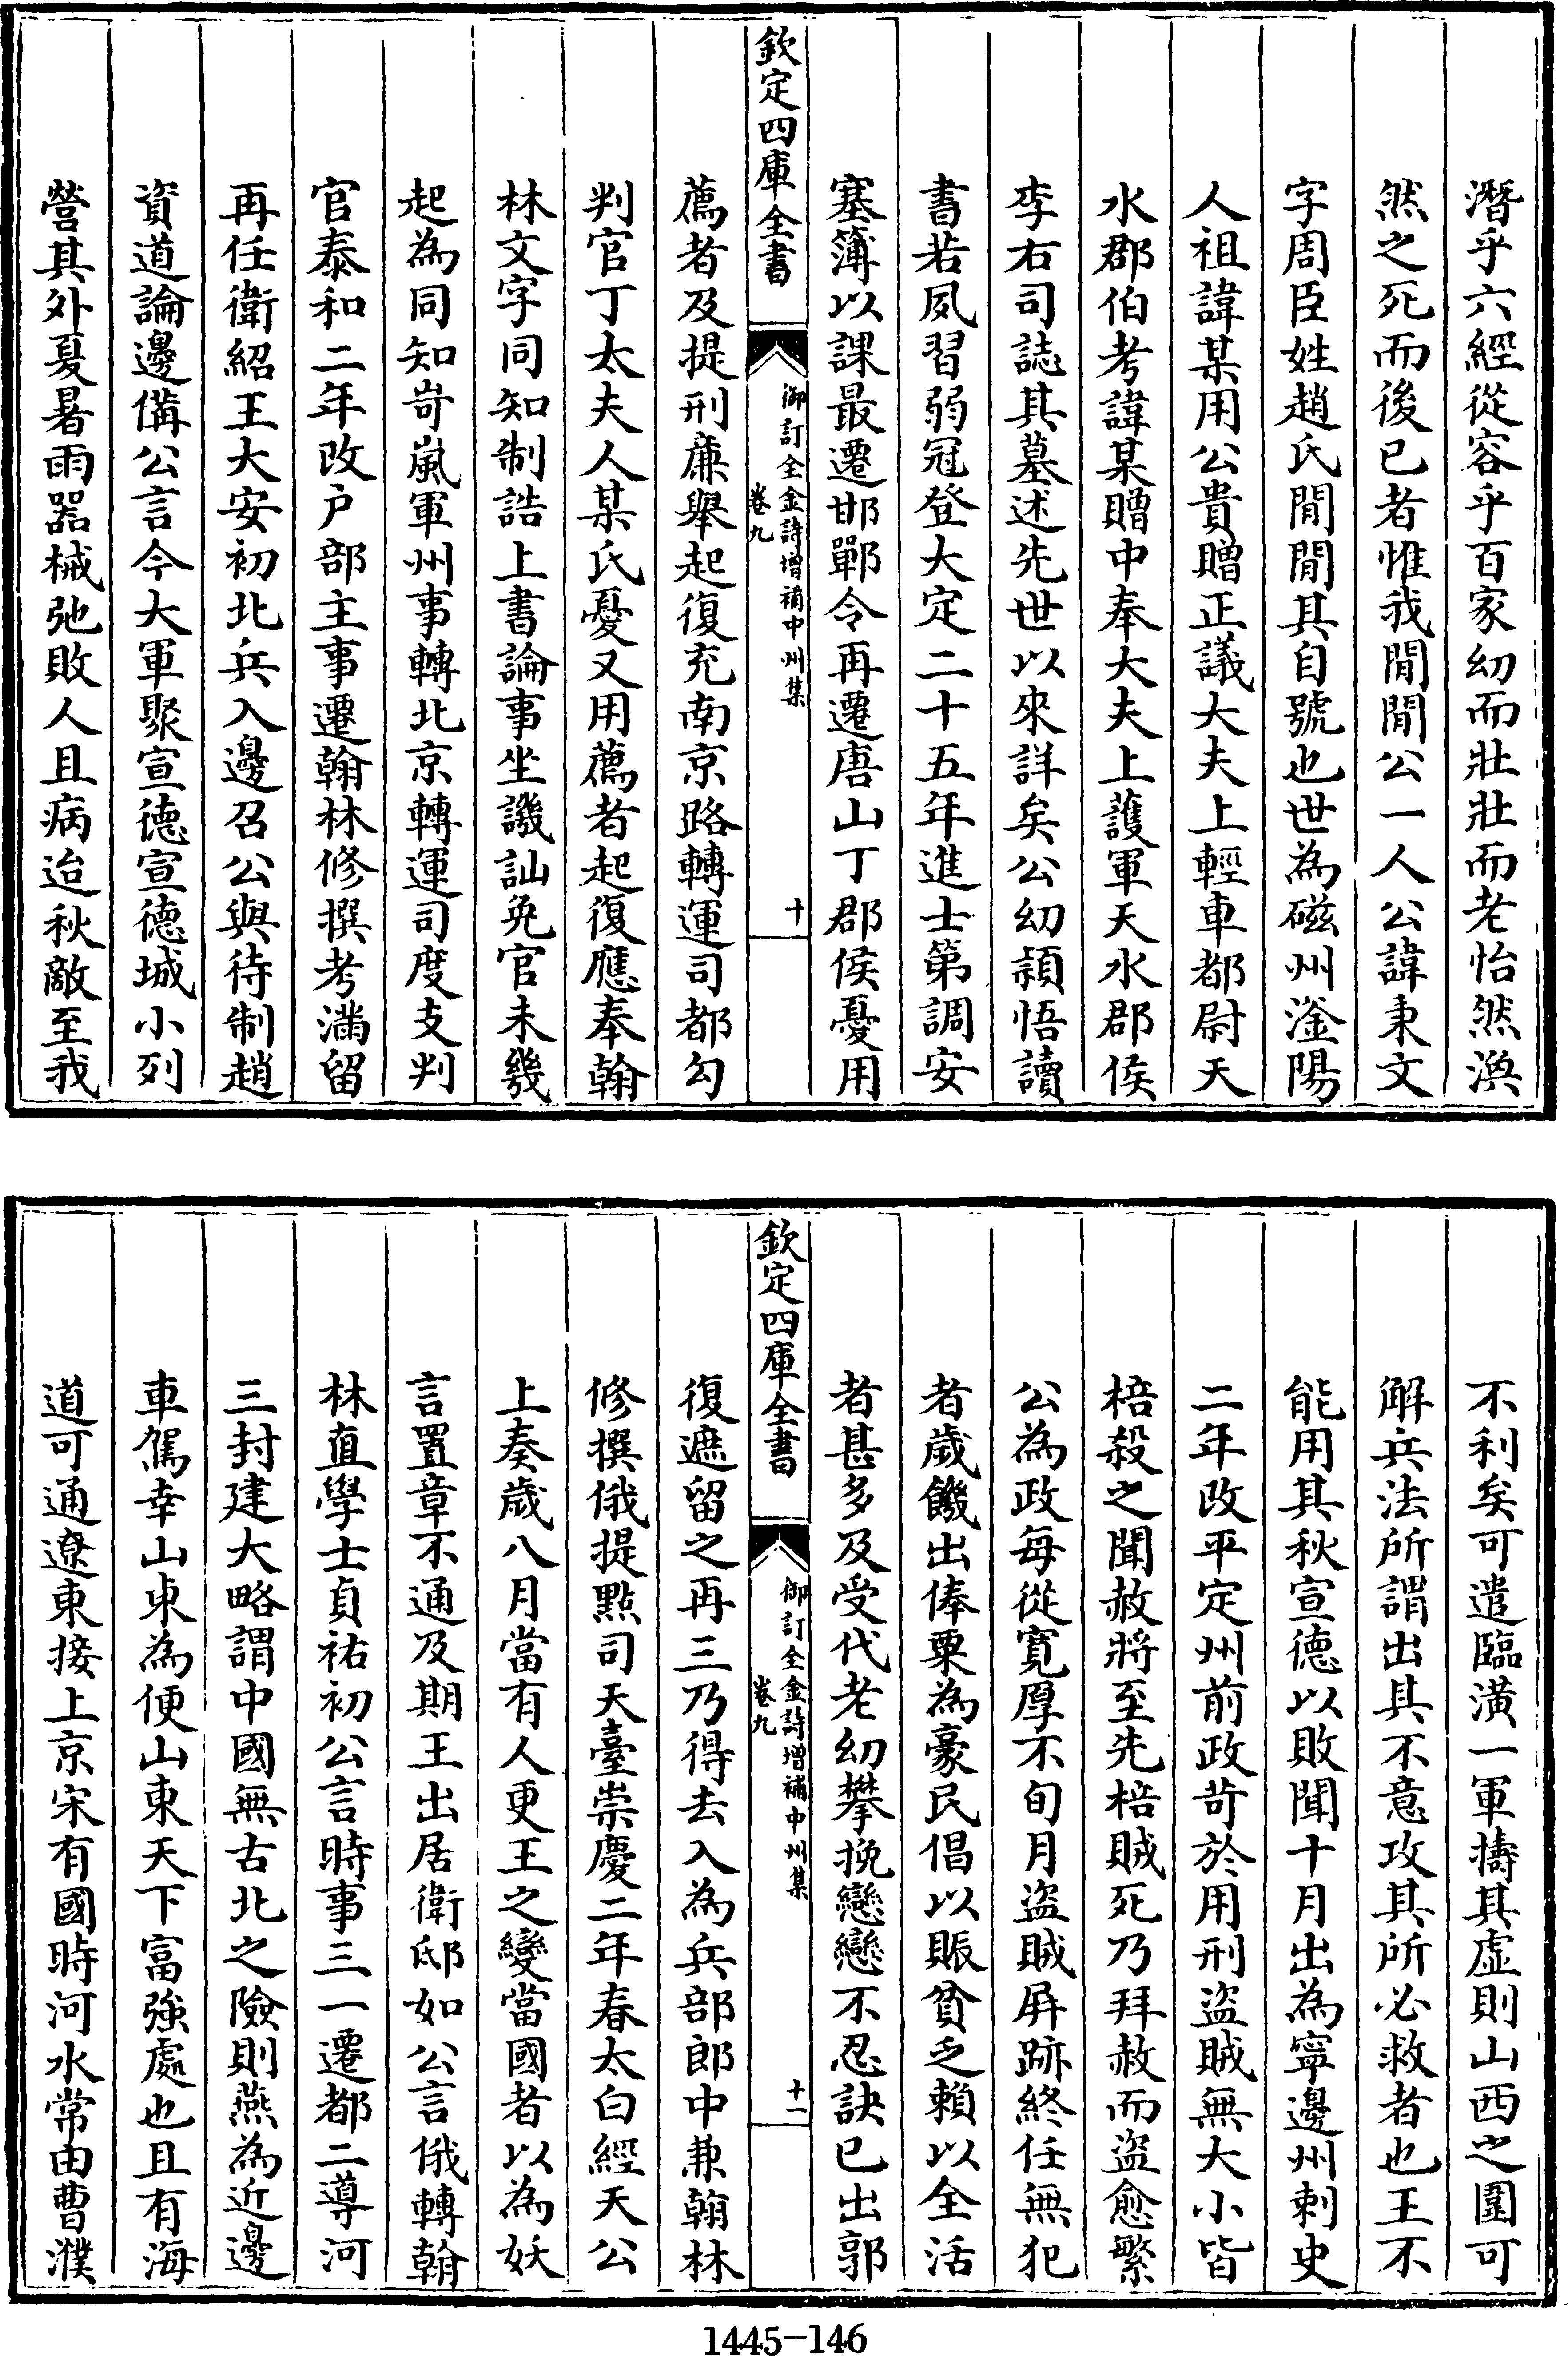 潛乎六經從容乎百家幼而壯壯而老怡然渙
然之死而後已者惟我閒閒公一人公諱秉文
字周臣姓趙氏閒閒其自號也世為磁州滏陽
人祖諱某用公貴贈正議大夫上輕車都尉天
水郡伯考諱某贈中奉大夫上護軍天水郡侯
李右司誌其墓述先世以來詳矣公幼穎悟讀
書若夙習弱冠登大定二十五年進士第調安
塞簿以課最遷邯鄲令再遷唐山丁郡侯憂用
欽定四庫全書
御訂全金詩增補中州集
卷九
十
薦者及提刑廉舉起復充南京路轉運司都勾
判官丁太夫人某氏憂又用薦者起復應奉翰
林文字同知制誥上書論事坐譏訕免官未幾
起為同知岢嵐軍州事轉北京轉運司度支判
官泰和二年改户部主事遷翰林修撰考滿留
再任衛紹王大安初北兵入邊召公與待制趙
資道論邊備公言今大軍聚宣德宣德城小列
營其外夏暑雨器械弛敗人且病迨秋敵至我
不利矣可遣臨潢一軍擣其虛則山西之圍可
解兵法所謂出其不意攻其所必救者也王不
能用其秋宣德以敗聞十月出為寧邊州刺史
二年改平定州前政苛於用刑盜賊無大小皆
棓殺之聞赦將至先棓賊死乃拜赦而盜愈繁
公為政每從寛厚不旬月盜賊屏跡終任無犯
者歲饑出俸粟為豪民倡以賑貧乏賴以全活
者甚多及受代老幼攀挽戀戀不忍訣已出郭
欽定四庫全書
御訂全金詩增補中州集
卷九
十一
復遮留之再三乃得去入為兵部郎中兼翰林
修撰俄提點司天臺崇慶二年春太白經天公
上奏歲八月當有人更王之變當國者以為妖
言置章不通及期王出居衛邸如公言俄轉翰
林直學士貞祐初公言時事三一遷都二導河
三封建大略謂中國無古北之險則燕為近邊
車駕幸山東為便山東天下富強處也且有海
道可通遼東接上京宋有國時河水常由曹濮
1445-146